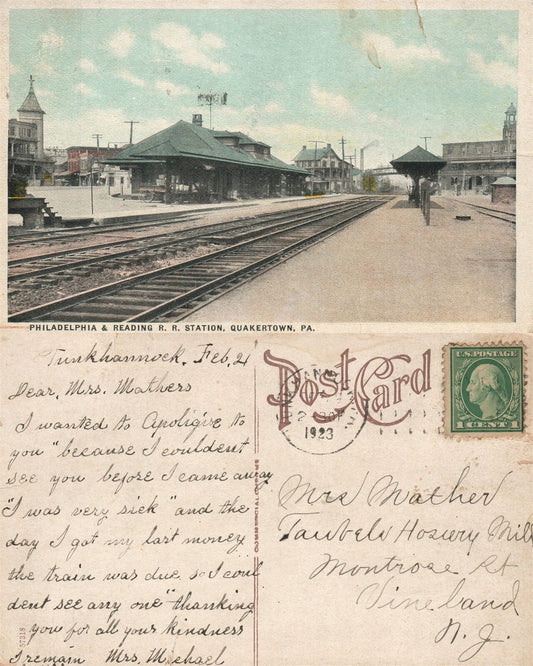 PHILADELPHIA & READING R. R. STATION, QUAKERTOWN, PA.
Tunkhannock, Feb, 21
Dear, Mrs. Mathers
I wanted to Apoligize to
you "because I couldent
see you before I came away
"I was very sick" and the
day I got my last money
the train was due, so I coul
dent see any one" thanking
you for all your kindness
I remain Mrs. Michael
57318
COMMERCIALCHROME
Post Card
1923
U.S. POSTAGE
1 CENT 1
Mrs Mather
Taubels Hosiery Mill
Montrose St
Vineland
N. J.